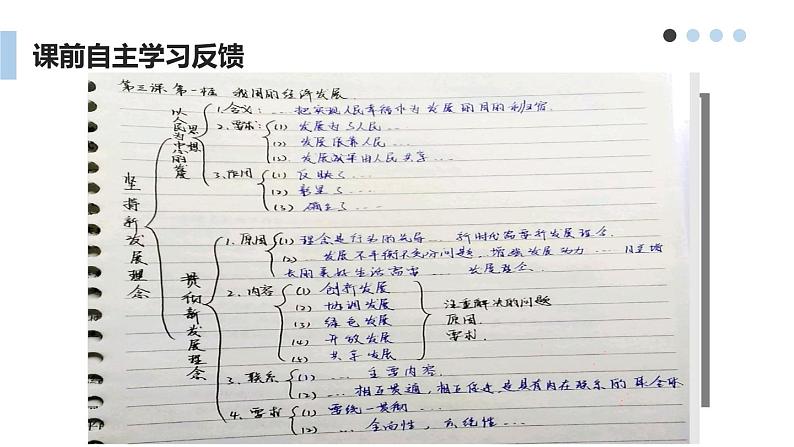 课前自主学习反馈
第三课 第一框 我国的经济发展
坚持新发展理念
以人民为中心的发展思想
1.含义：… 把实现人民幸福作为发展的目的和归宿
2.要求：(1) 发展为了人民 …
(2) 发展依靠人民 …
(3) 发展成果由人民共享 …
3.原因 (1) 反映了 …
(2) 彰显了 …
(3) 确立了 …
贯彻新发展理念
1.原因 (1) 理念是行为的先导 … 新时代需要新发展理念.
(2) … 发展不平衡不充分问题，增强发展动力 … 日益增
长的美好生活需要 … 发展理念.
2.内容 (1) 创新发展
(2) 协调发展
(3) 绿色发展
(4) 开放发展
(5) 共享发展
注重解决的问题
原因
要求.
3.联系 (1) … 主要内容.
(2) … 相互贯通，相互促进，是具有内在联系的集合体
4.要求 (1) 要统一贯彻 …
(2) … 全面性，系统性 …